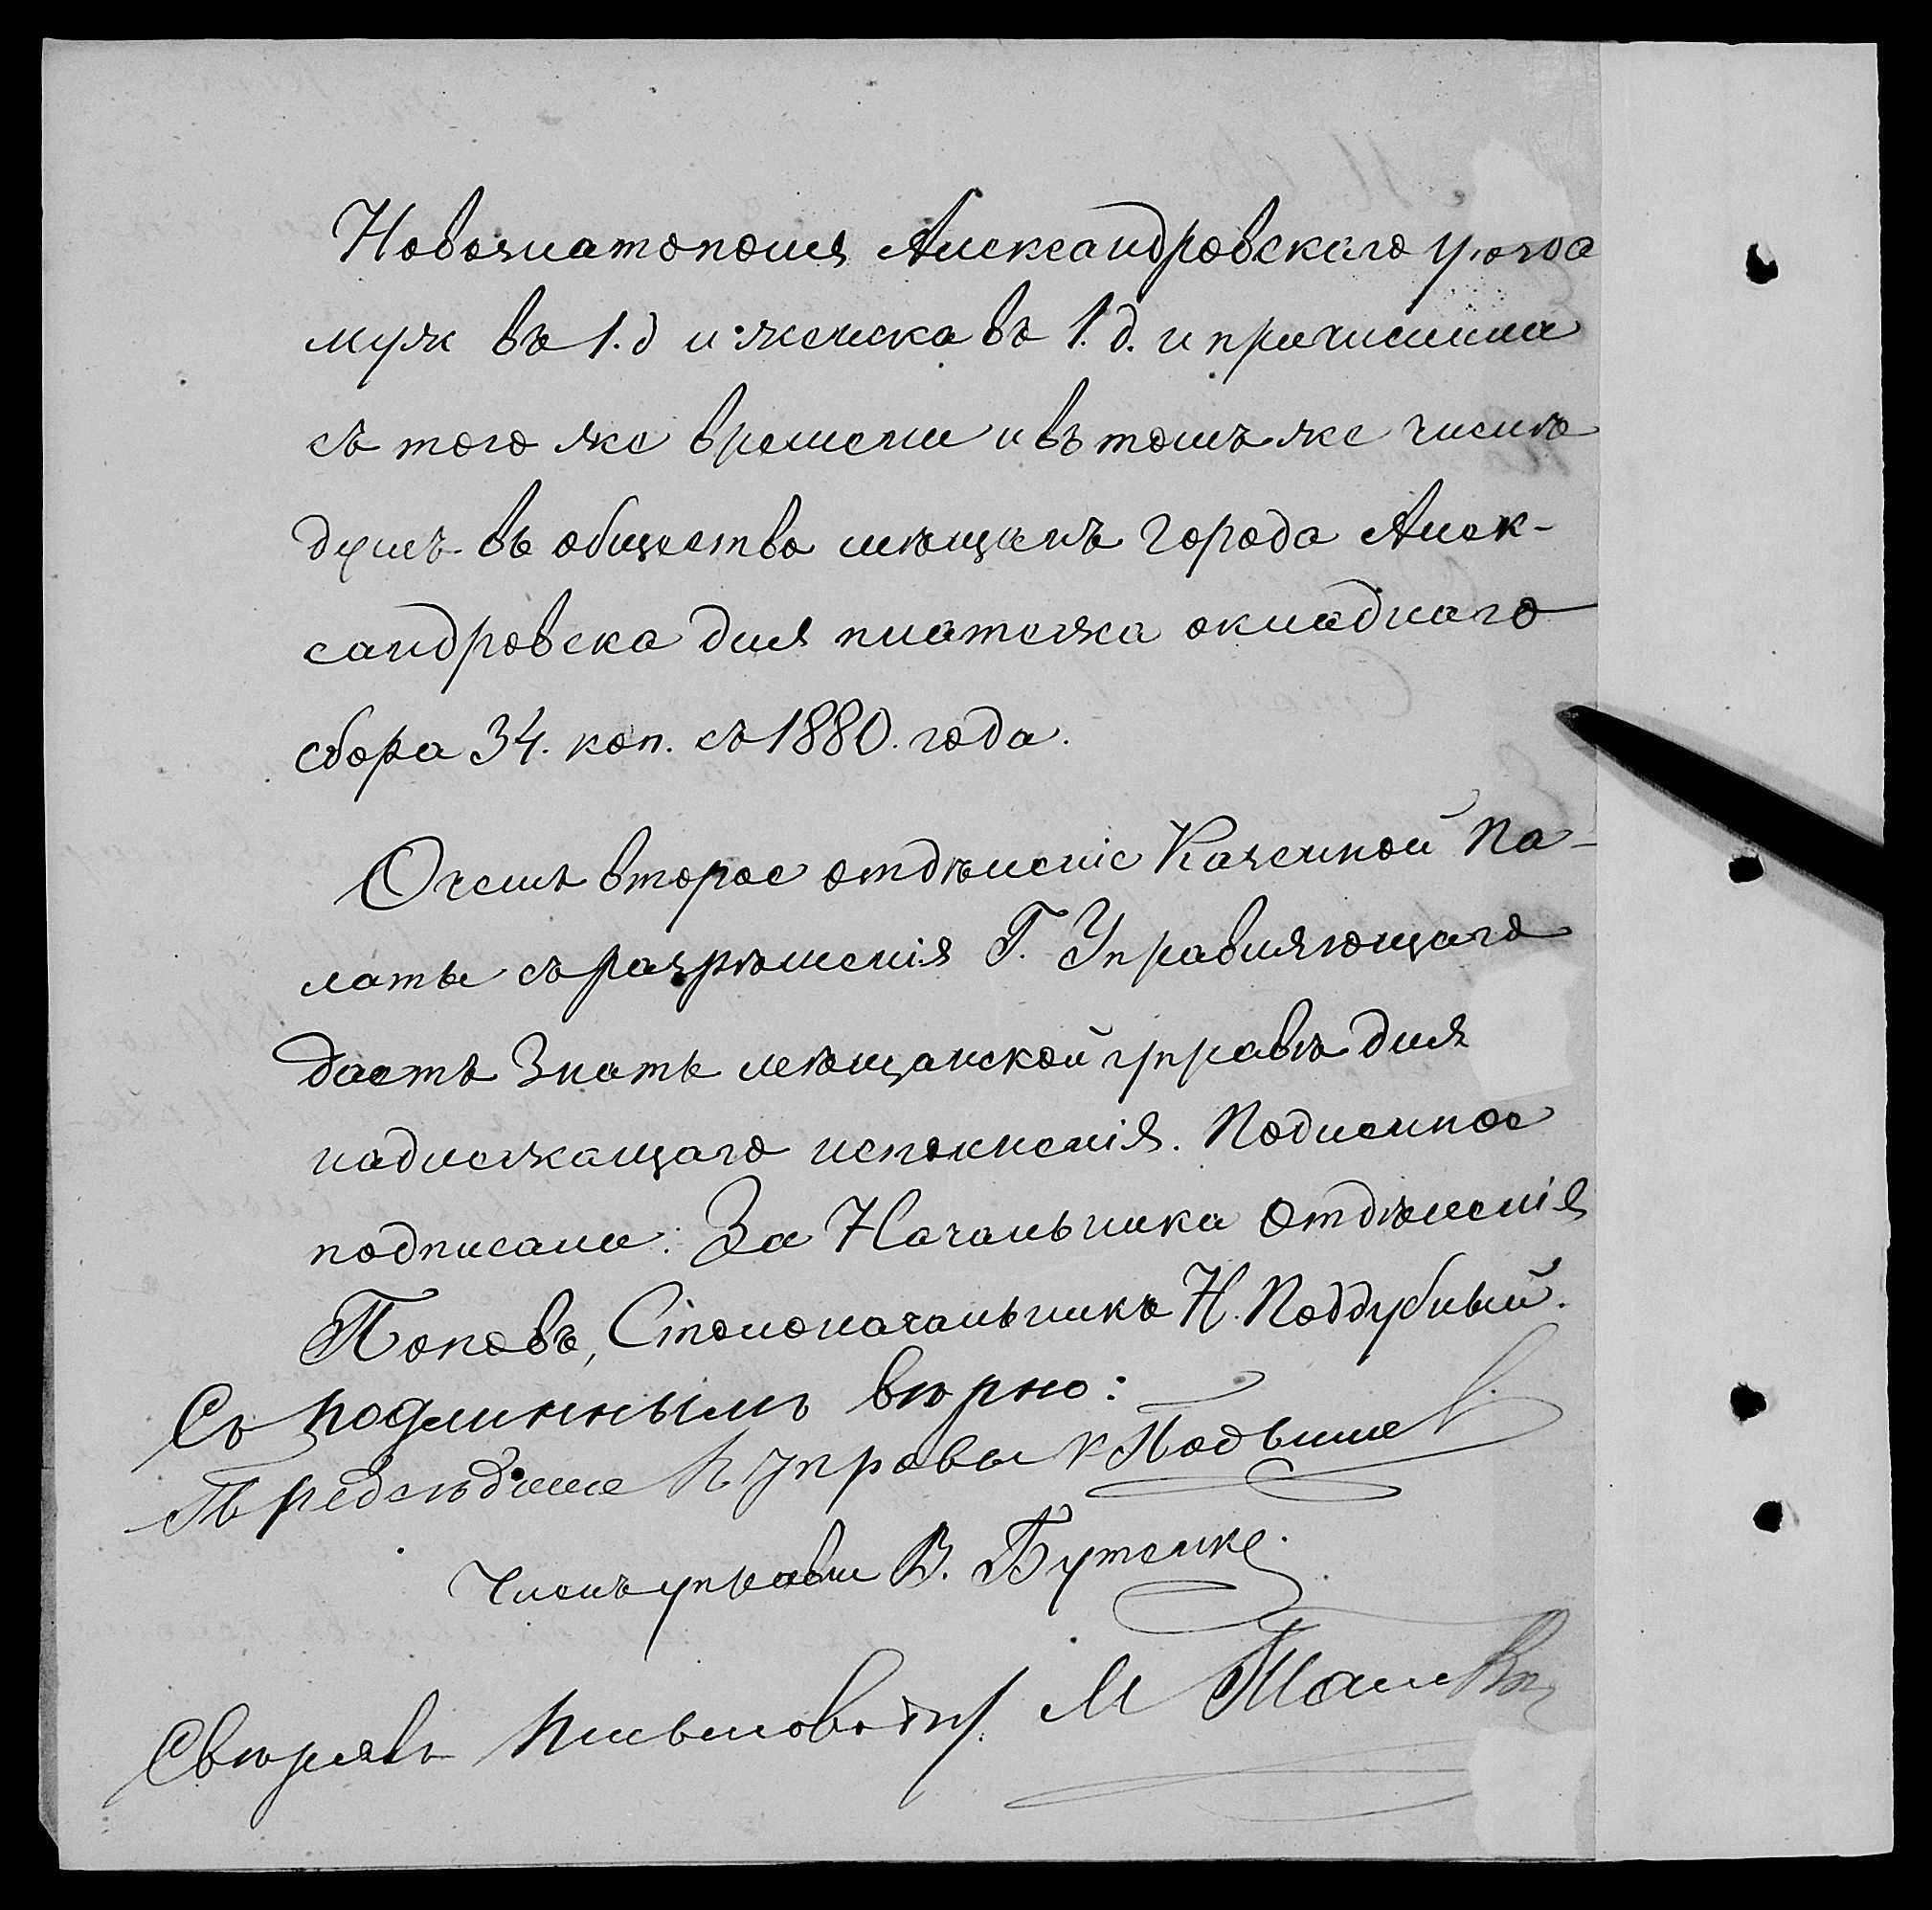 Новозлатополя Александровскаго уѣзда
муж въ 1. д и женска въ 1. д. и причислила
съ того же времени и въ томъ же числѣ
душъ въ общество мѣщанъ города Алек-
сандровска для платежа окладнаго
сбора 34. коп. съ 1880. года.
О чемъ второе отдѣленіе Казенной Па-
латы съ разрѣшенія Г. Управляющаго
даетъ знать мѣщанской управѣ для
надлежащаго исполненія. Подленное
подписали: За Начальника Отдѣленія
Поповъ, Столоначальникъ Н. Поддубный.
Съ подлиннымъ вѣрно:
Предсѣдатель управы
Членъ управы В. Бутенко.
Свѣрялъ письмоводит. М